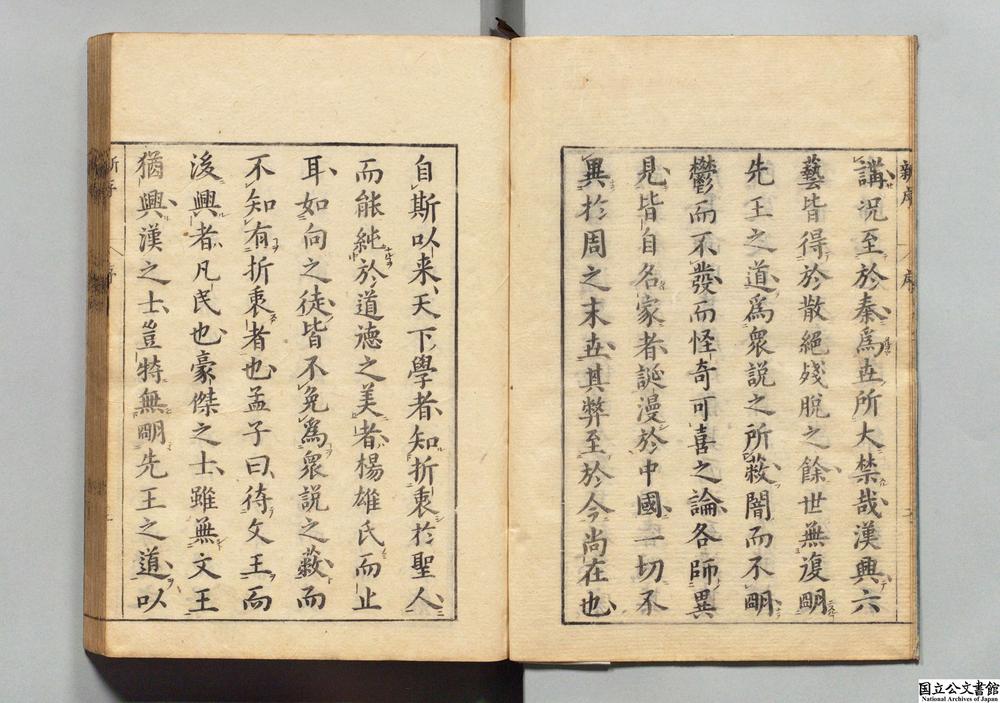 新序
序
講况至於秦爲世所大禁哉漢興六
藝皆得於散絕殘脫之餘世無復明
先王之道爲衆說之所蔽闇而不明
鬱而不發而怪奇可喜之論各師異
見皆自名家者誕漫於中國一切不
異於周之末世其弊至於今尚在也
自斯以来天下學者知折衷於聖人
而能純於道德之美者楊雄氏而止
耳如向之徒皆不免爲衆說之蔽而
不知有折衷者也孟子曰待文王而
後興者凡民也豪傑之士雖無文王
猶興漢之士豈特無明先王之道以
国立公文書館
National Archives of Japan